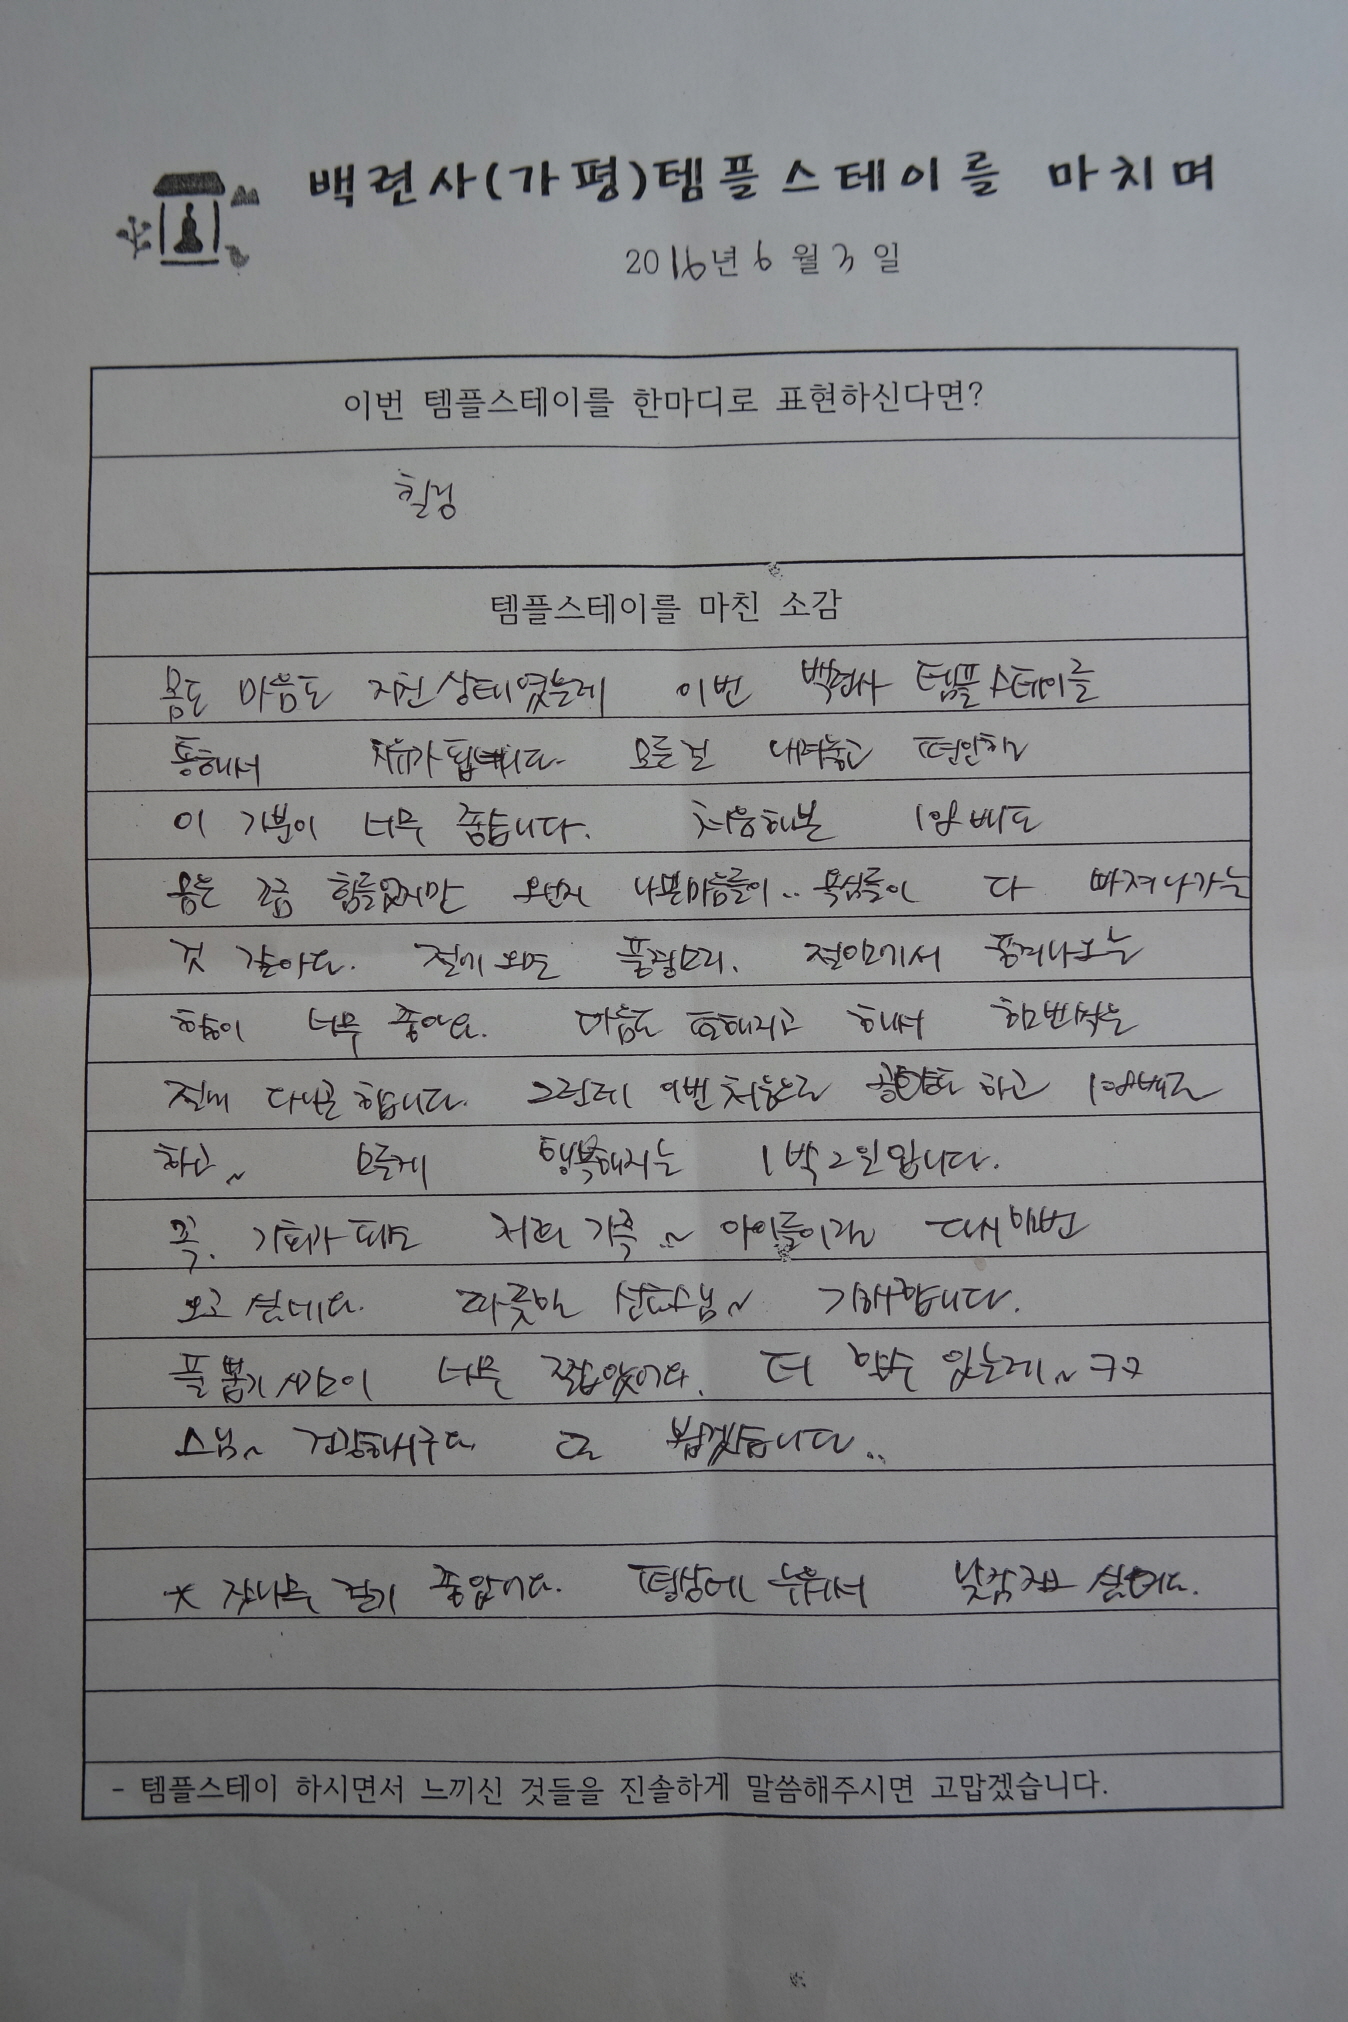 백련사(가평)템플스테이를 마치며
2016년 6월 3일
이번 템플스테이를 한마디로 표현하신다면?
힐링
템플스테이를 마친 소감
몸도 마음도 지친상태였는데 이번 백련사 템플스테이를
통해서 치유가 됩니다. 모든걸 내려놓고 편안한
이 기분이 너무 좋습니다. 처음해본 108배도
몸은 조금 힘들었지만 왠지 나쁜마음들이.. 욕심들이 다 빠져나가는
것 같아다. 절에 오면 풍광소리. 절에서 풍겨나오는
향이 너무 좋아요. 마음도 편해지고 해서 한번씩은
절에 다니곤 합니다. 그런데 이번 처음으로 공양도 하고 108배도
하고~ 모든게 행복해지는 1박2일입니다.
꼭. 기회가 되면 저희 가족~ 아이들이랑 다시한번
오고 싶네요. 따뜻한 스님~ 기억합니다.
풀뽑기 시간이 너무 짧았어요. 더 할수 있는데~ ㅋㅋ
스님~ 건강하시구요 또 뵙겠습니다..
* 잣나무 길이 좋았어요. 평상에 누워서 낮잠자고 싶어요.
- 템플스테이 하시면서 느끼신 것들을 진솔하게 말씀해주시면 고맙겠습니다.